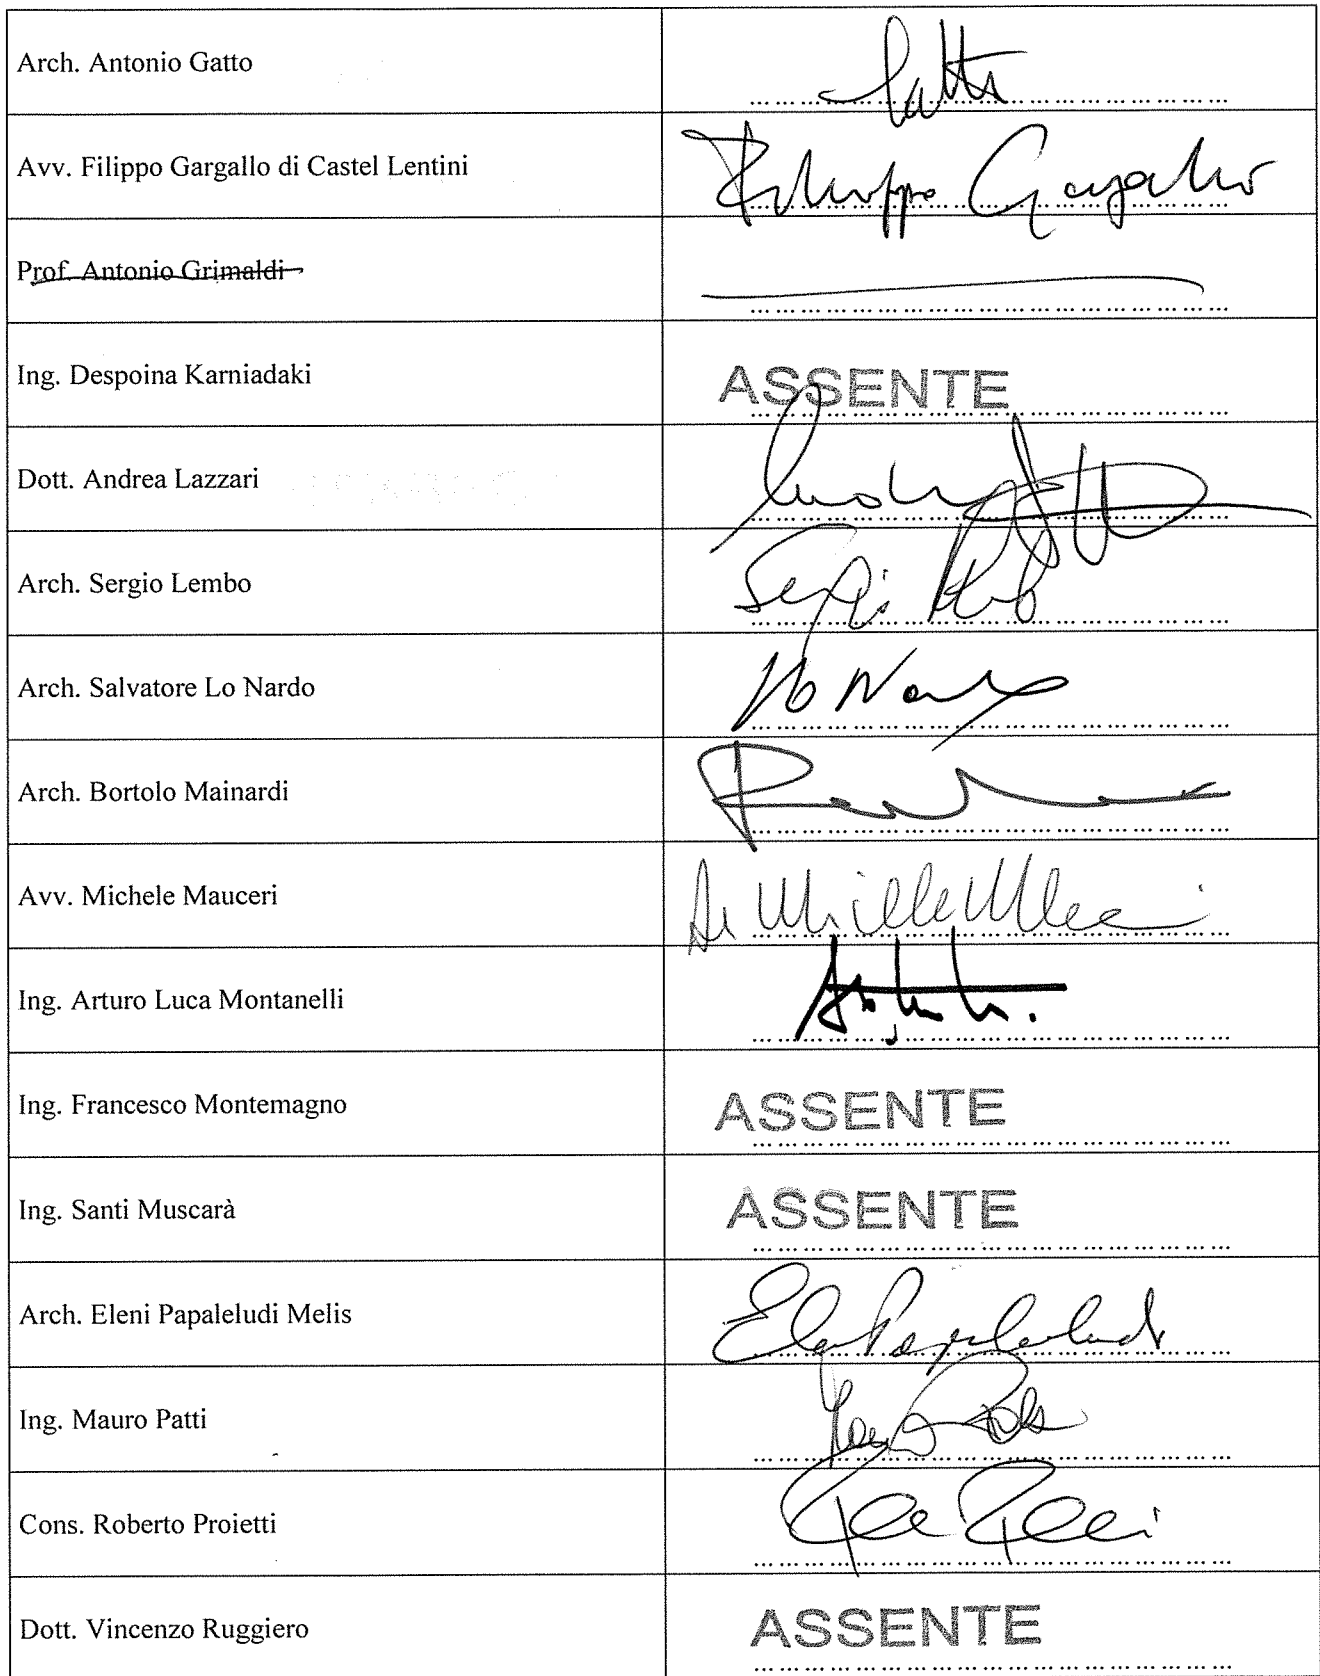 Arch. Antonio Gatto
Gatto
Avv. Filippo Gargallo di Castel Lentini
Filippo Gargallo
Prof. Antonio Grimaldi
Ing. Despoina Karniadaki
ASSENTE
Dott. Andrea Lazzari
Arch. Sergio Lembo
Sergio
Arch. Salvatore Lo Nardo
Lo Nardo
Arch. Bortolo Mainardi
Avv. Michele Mauceri
Ing. Arturo Luca Montanelli
Ing. Francesco Montemagno
ASSENTE
Ing. Santi Muscarà
ASSENTE
Arch. Eleni Papaleludi Melis
Ing. Mauro Patti
Cons. Roberto Proietti
Dott. Vincenzo Ruggiero
ASSENTE